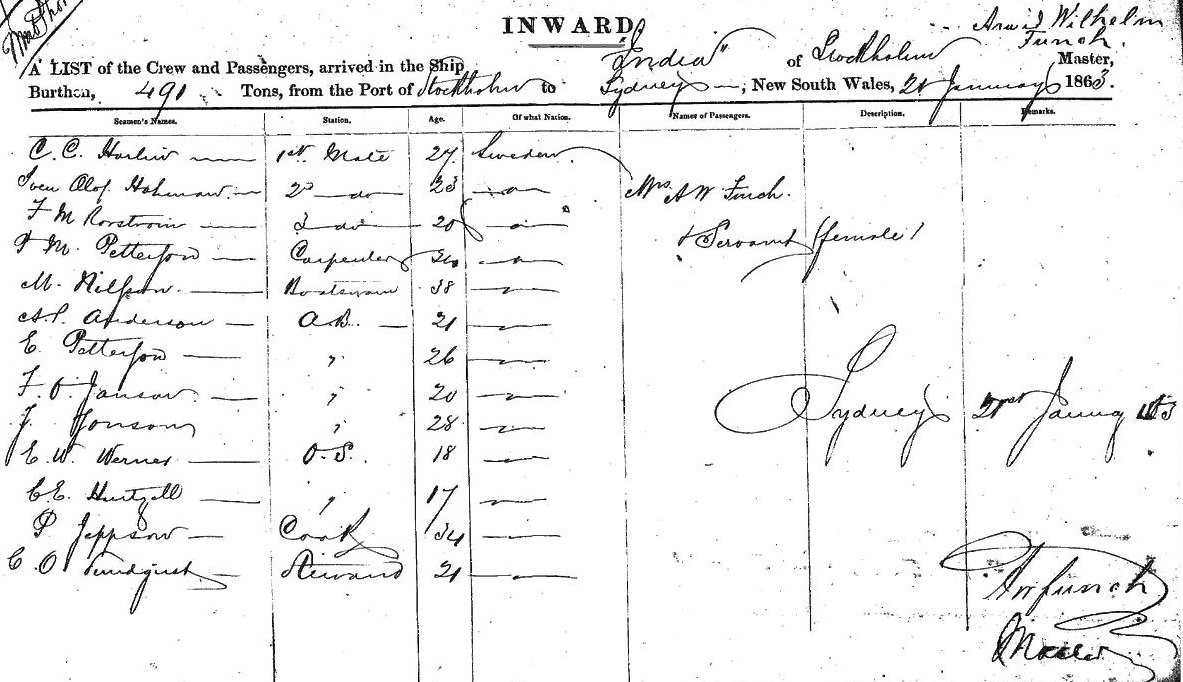 INWARD
Arvid Wilhelm
Funch.
A LIST of the Crew and Passengers, arrived in the Ship "India" of Stockholm Master,
Burthen, 491 Tons, from the Port of Stockholm to Sydney, New South Wales, 21 January 1863.
Seamen's Names. Station. Age. Of what Nation. Names of Passengers. Description. Remarks.
C. C. 1st Mate 27 Sweden
Sven Olof 2d do 23 do Mrs A W Funch.
F M 3 do 20 do
P M. Petterson Carpenter do & Servant (female)
M. Nilsson Boatswain 38
A. P. Anderson A.B. 21
E. Petterson " 26
F. O. Janson " 20 Sydney 21st January 1863
J. Jonson " 28
E. W. Werner O.S. 18
C. E. " 17
P Jeppson Cook 34
C. O. Steward 21
AW Funch
Master